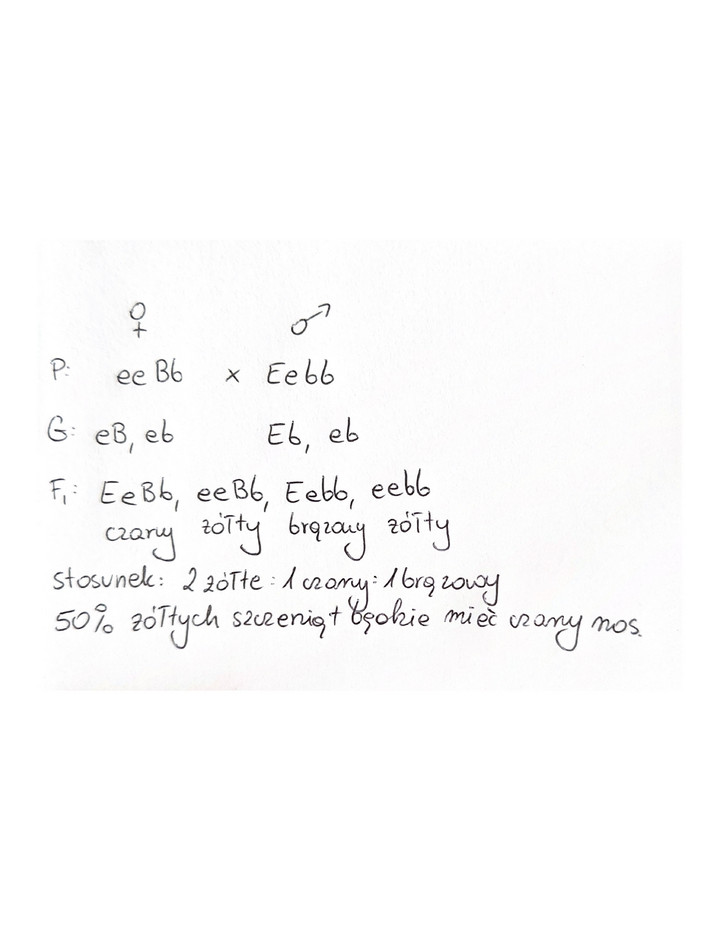 ♀ ♂
P: ee Bb x Ee bb
G: eB, eb Eb, eb
F₁: EeBb, eeBb, Eebb, eebb
czarny żółty brązowy żółty
stosunek: 2 żółte : 1 czarny : 1 brązowy
50% żółtych szczeniąt będzie mieć czarny nos.